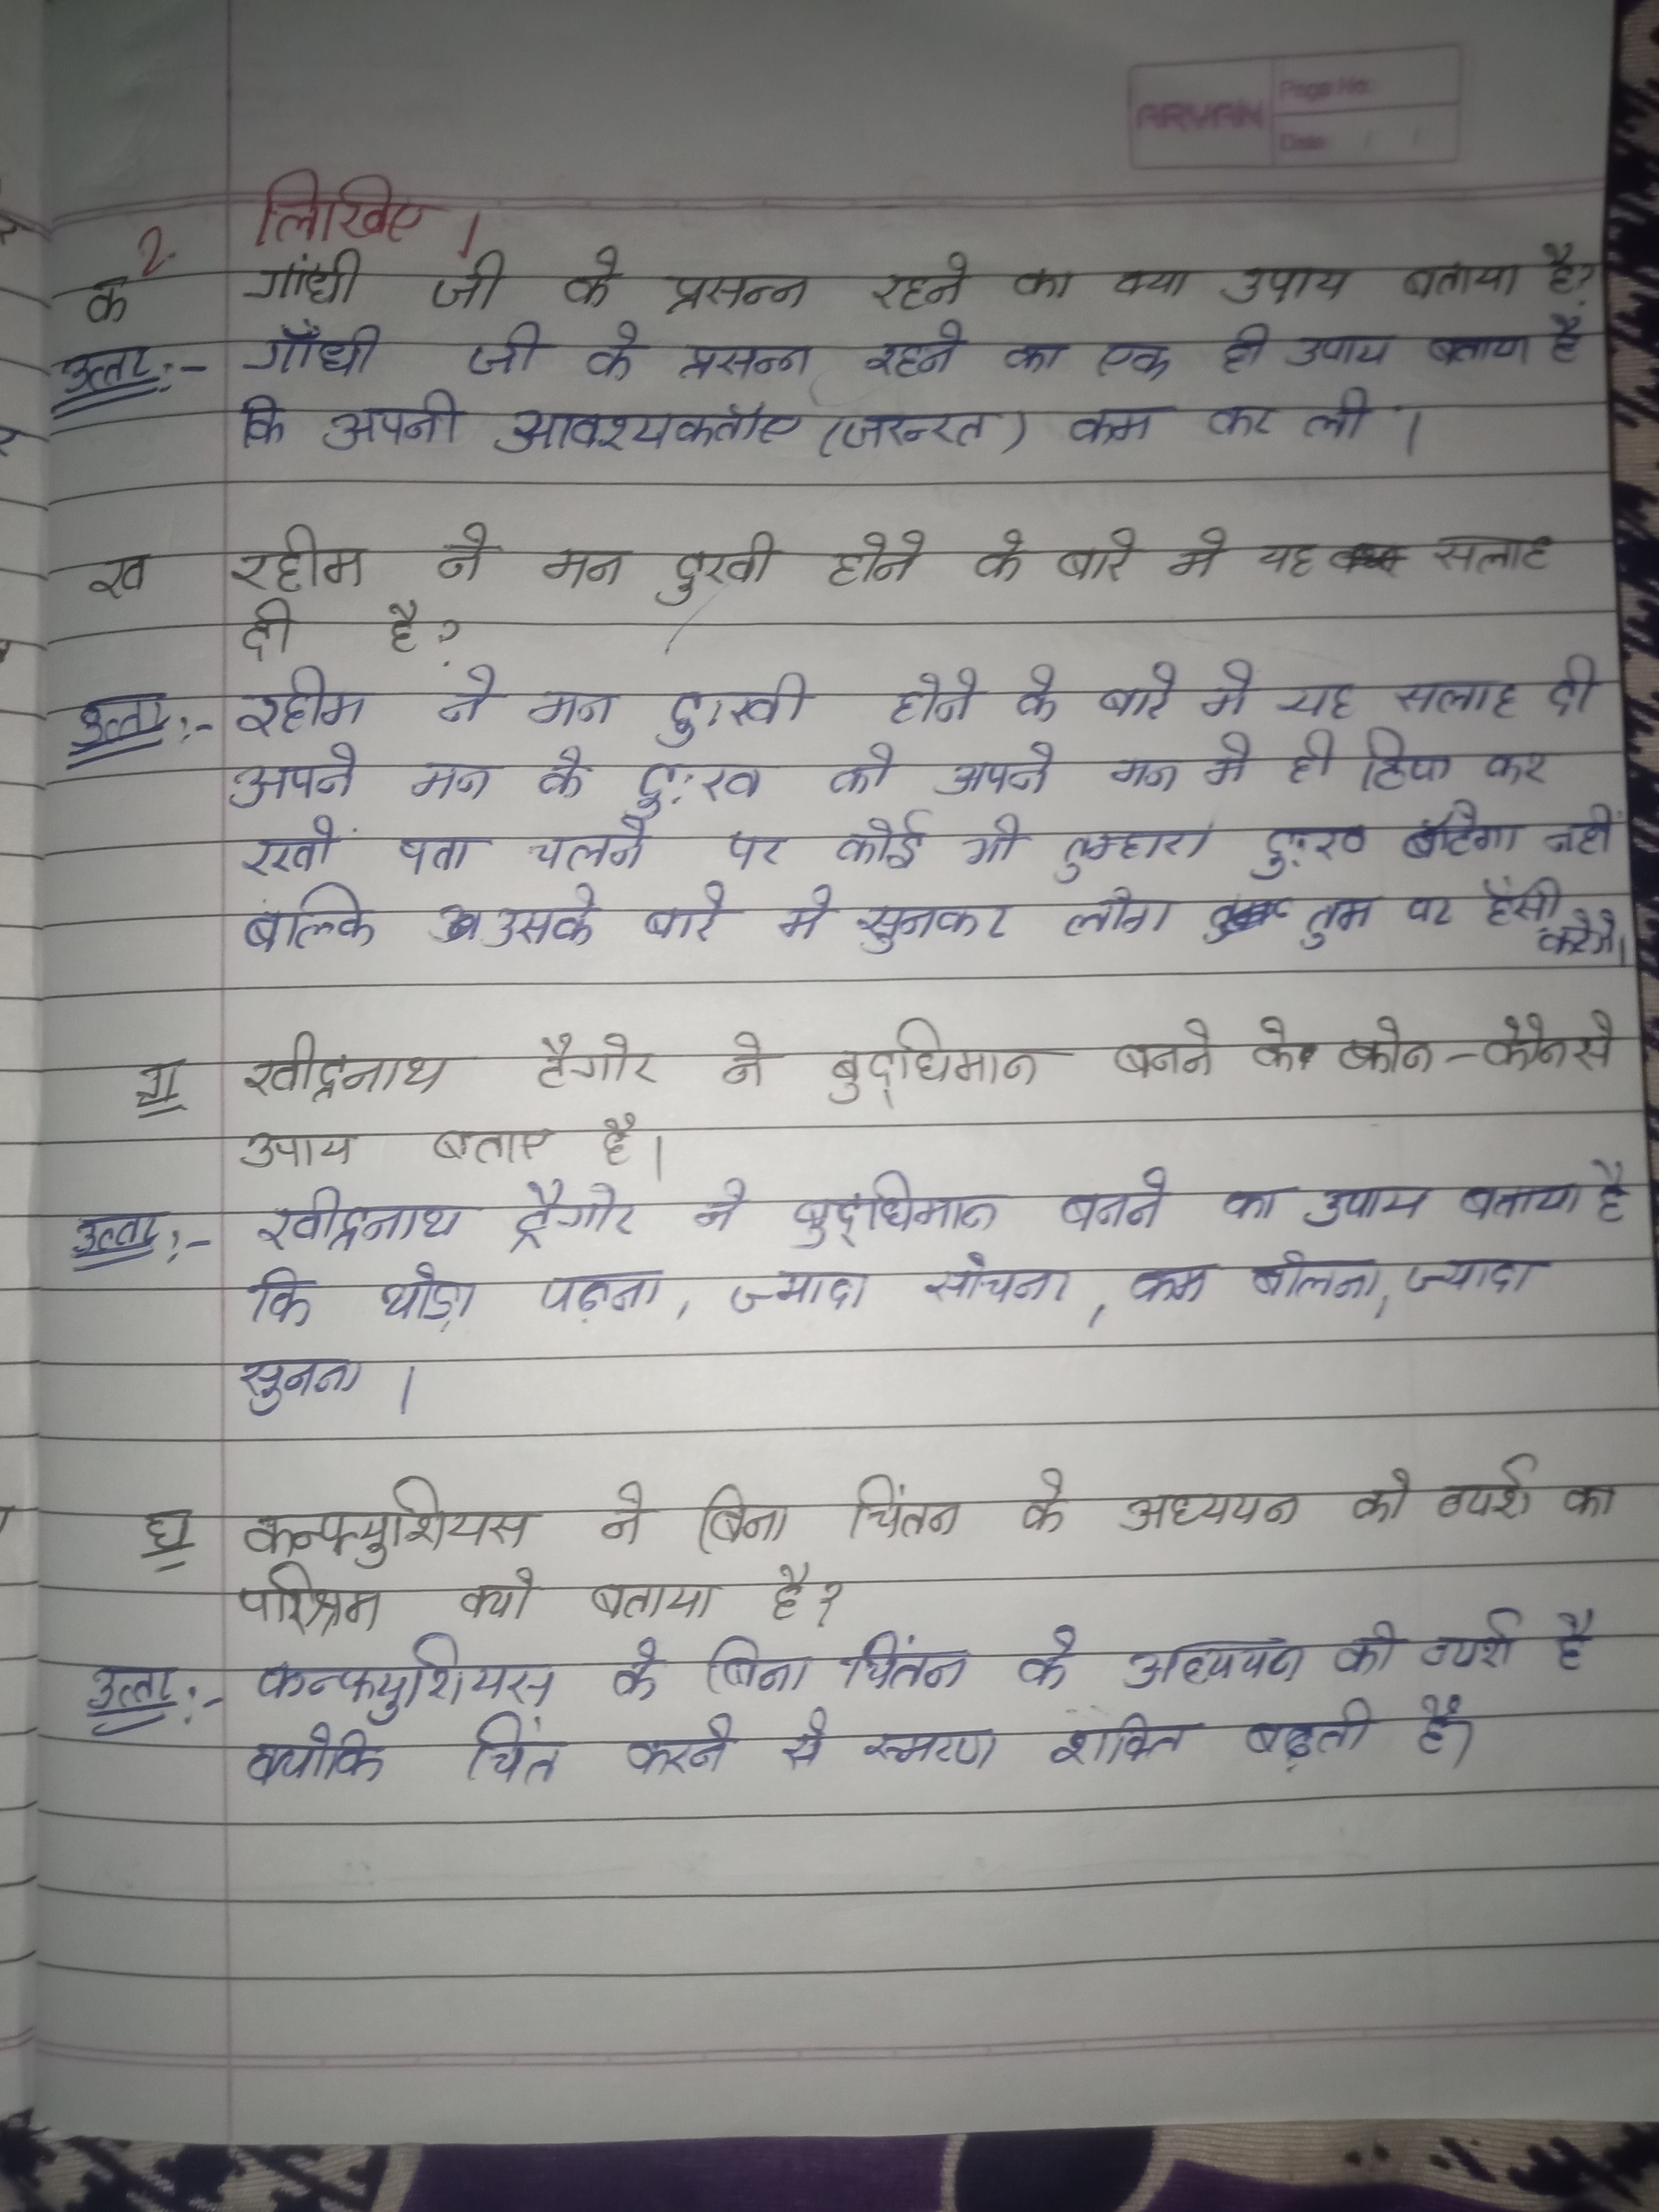 ARYAN Page No.
Date / /
2. लिखिए ।
क गांधी जी के प्रसन्न रहने का क्या उपाय बताया है?
उत्तर:- गाँधी जी के प्रसन्न रहने का एक ही उपाय बताया है
कि अपनी आवश्यकताँए (जरुरत) कम कर लो ।
ख रहीम ने मन दुखी होने के बारे मे यह सलाह
दी है?
उत्तर:- रहीम ने मन दुःखी होने के बारे मे यह सलाह दी
अपने मन के दुःख को अपने मन मे ही छिपा कर
रखों पता चलने पर कोई भी तुम्हारा दुःख बाँटेगा नहीं
बल्कि उसके बारे मे सुनकर लोग तुम पर हँसी
करेगे।
ग रवीद्रनाथ टैगोर ने बुद्धिमान बनने के कोन-कौनसे
उपाय बताए है।
उत्तर:- रवीद्रनाथ ट्रैगोर ने बुद्धिमान बनने का उपाय बताया है
कि थोड़ा पढ़ना, ज्यादा सोचना, कम बोलना, ज्यादा
सुनना ।
घ कन्फ्युशियस ने बिना चिंतन के अध्ययन को व्यर्थ का
परिश्रम क्यो बताया है?
उत्तर:- कन्फ्युशियस के बिना चिंतन के अध्ययन को व्यर्थ है
क्योकि चिंत करने से स्मरण शक्ति बढ़ती है।